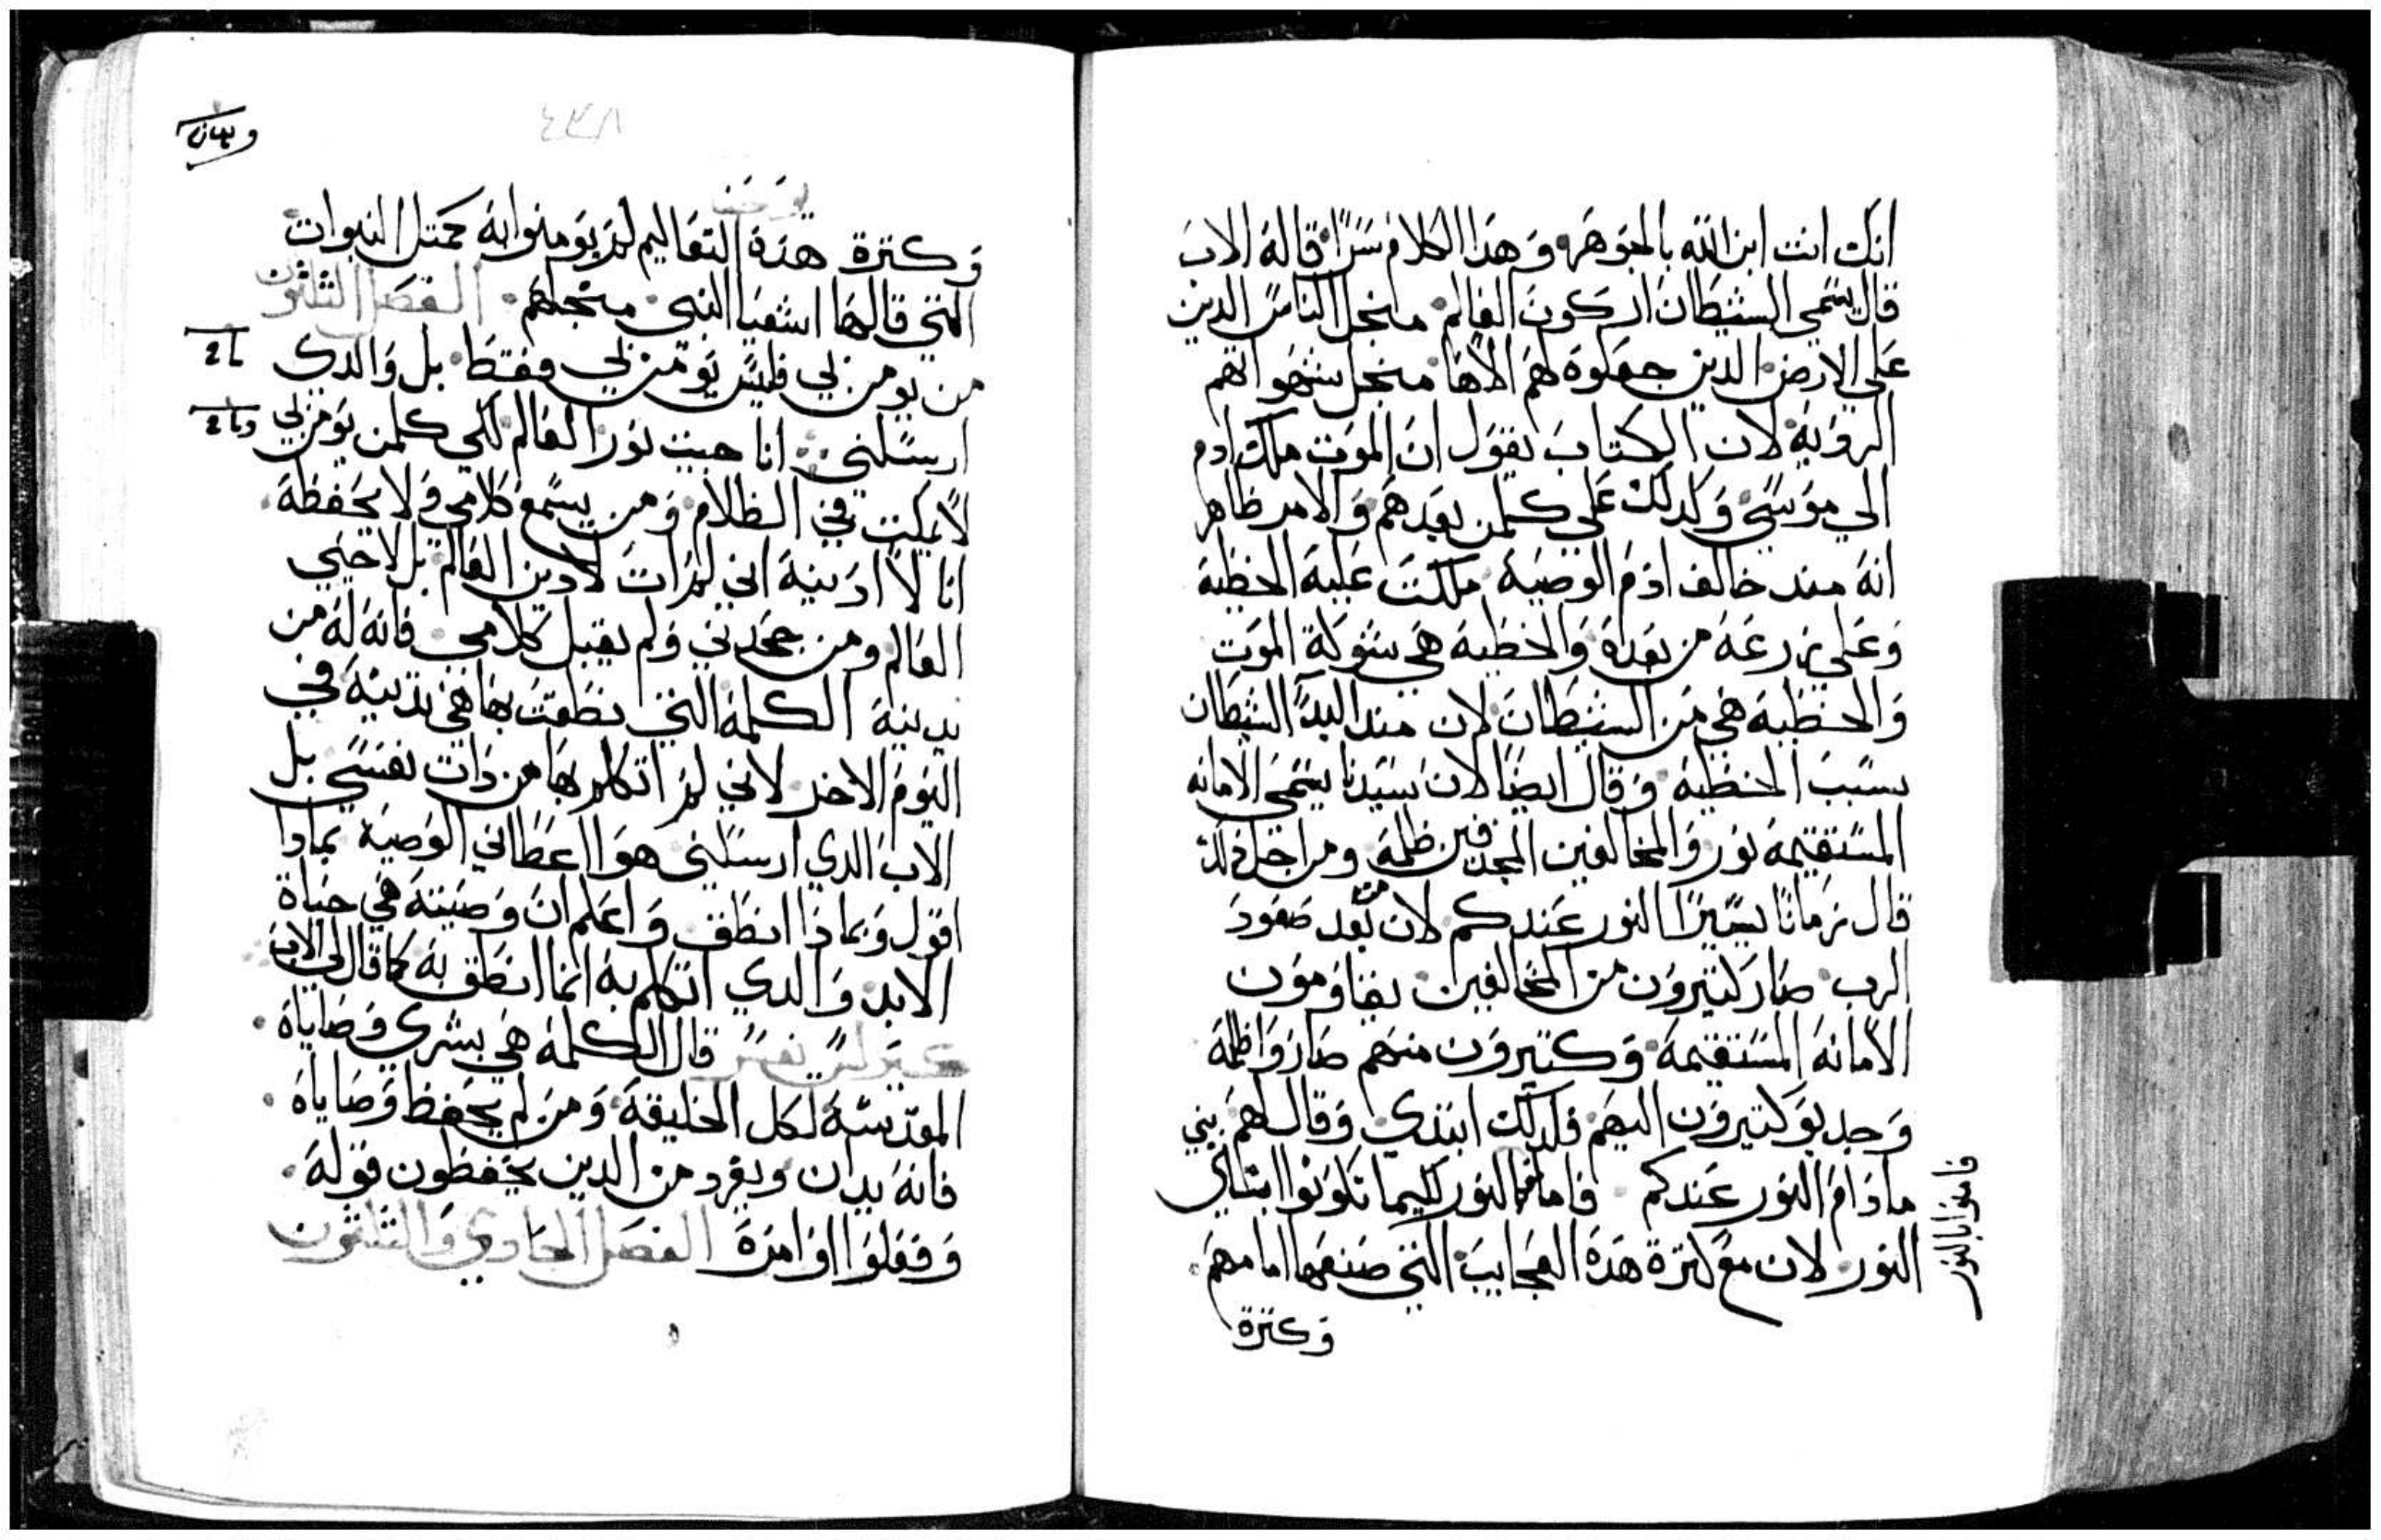 انك انت ابن الله بالجوهر وهذا الكلام سرًا قاله الاب
قال يسمي الشيطان اركون العالم منجل الناس الدين
علي الارض الدين جعلوه لهم الاهًا منجل شهواتهم
الرويه لان الكتاب يقول ان الموت ملك ادم
الي موسي وكدلك علي كلمن بعدهم والامر ظاهر
انه مند خالف ادم الوصيه ملكت عليه الخطيه
وعلي زرعه من بعده والخطيه هي شوكة الموت
والخطيه هي من الشيطان لان مند البدأ الشيطان
بسبب الخطيه وقال ايضًا لان سيدنا يسمي الامانه
المستقيمه نور والمخالفين المجدفين ظلمه ومن اجل دلك
قال زمانًا يسيرًا النور عندكم لان من بعد صعود
الرب صار كتيرون من المخالفين يقاومون
الامانه المستقيمه وكتيرون منهم صاروا ظلمه
وجدبو كتيرون اليهم فلدلك ابتدي وقال لهم بني
ما دام النور عندكم فامنوا بالنور لكيما تكونوا ابناء
فامنوا بالنور
النور لان مع كترة هده العجايب التي صنعها امامهم
وكترة
يوحنا
وكترة هده التعاليم لم يومنوا به كمتل النبوات
التي قالها اشعيا النبي منجلهم الفصل الثلثون
من يومن بي فليس يومن بي فقط بل والدي
ارسلني انا جيت نور العالم لكي كلمن يومن بي
لا يمكت في الظلام ومن يسمع كلامي ولا يحفظه
انا لا ادينه اني لم ات لادين العالم بل لاحيي
العالم ومن جحدني ولم يقبل كلامي فانه له من
يدينه الكلمه التي نطقت بها هي تدينه في
اليوم الاخر لاني لم اتكلم بها من دات نفسي بل
الاب الدي ارسلني هوا اعطاني الوصيه بمادا
اقول وبماذا انطق واعلم ان وصيته هي حياة
الابد والدي اتكلم به انما انطق به كما قال لي الاب
كيرلس يفسر قال الكلمه هي بشري وصاياه
المقدسه لكل الخليقه ومن لم يحفظ وصاياه
فانه يدان ويفرد من الدين يحفظون قوله
وفعلوا اوامره الفصل الحادي والثلثون